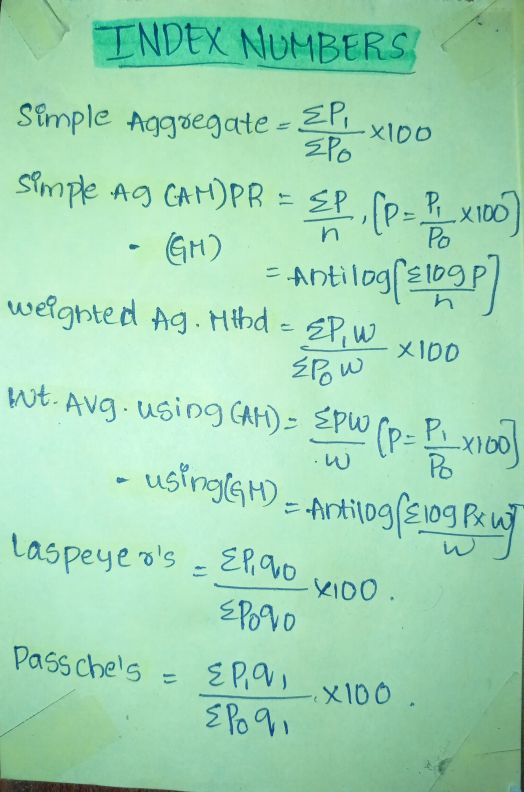 INDEX NUMBERS
Simple Aggregate = ΣP₁/ΣP₀ ×100
Simple Ag (AM)PR = ΣP/n, [P = P₁/P₀ ×100]
- (GM) = Antilog[Σlog P/n]
Weighted Ag. Mthd = ΣP₁W/ΣP₀W ×100
Wt. Avg. using (AM) = ΣPW/W [P = P₁/P₀ ×100]
- using (GM) = Antilog[Σlog P×W/W]
Laspeyer's = ΣP₁q₀/ΣP₀q₀ ×100.
Passche's = ΣP₁q₁/ΣP₀q₁ ×100.